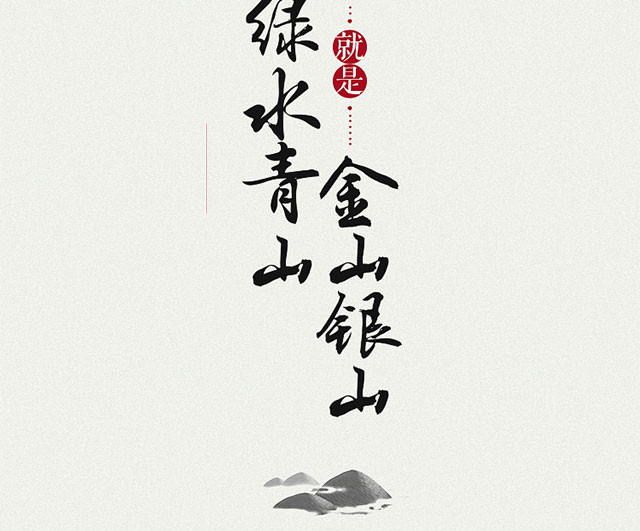 绿水青山
就是
金山银山